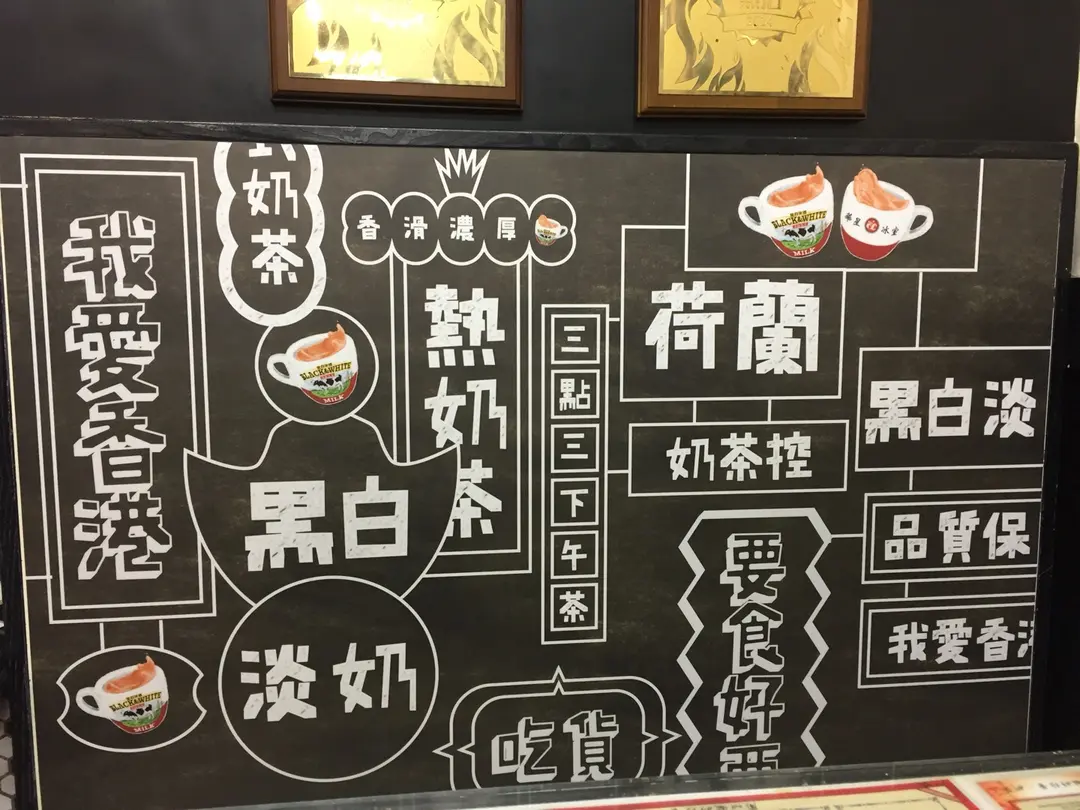 我愛香港
奶茶
BLACK&WHITE
MILK
黑白
淡奶
BLACK&WHITE
MILK
香滑濃厚
熱奶茶
三點三下午茶
吃貨
BLACK&WHITE
MILK
華星冰室
荷蘭
奶茶控
要食好
黑白淡
品質保
我愛香